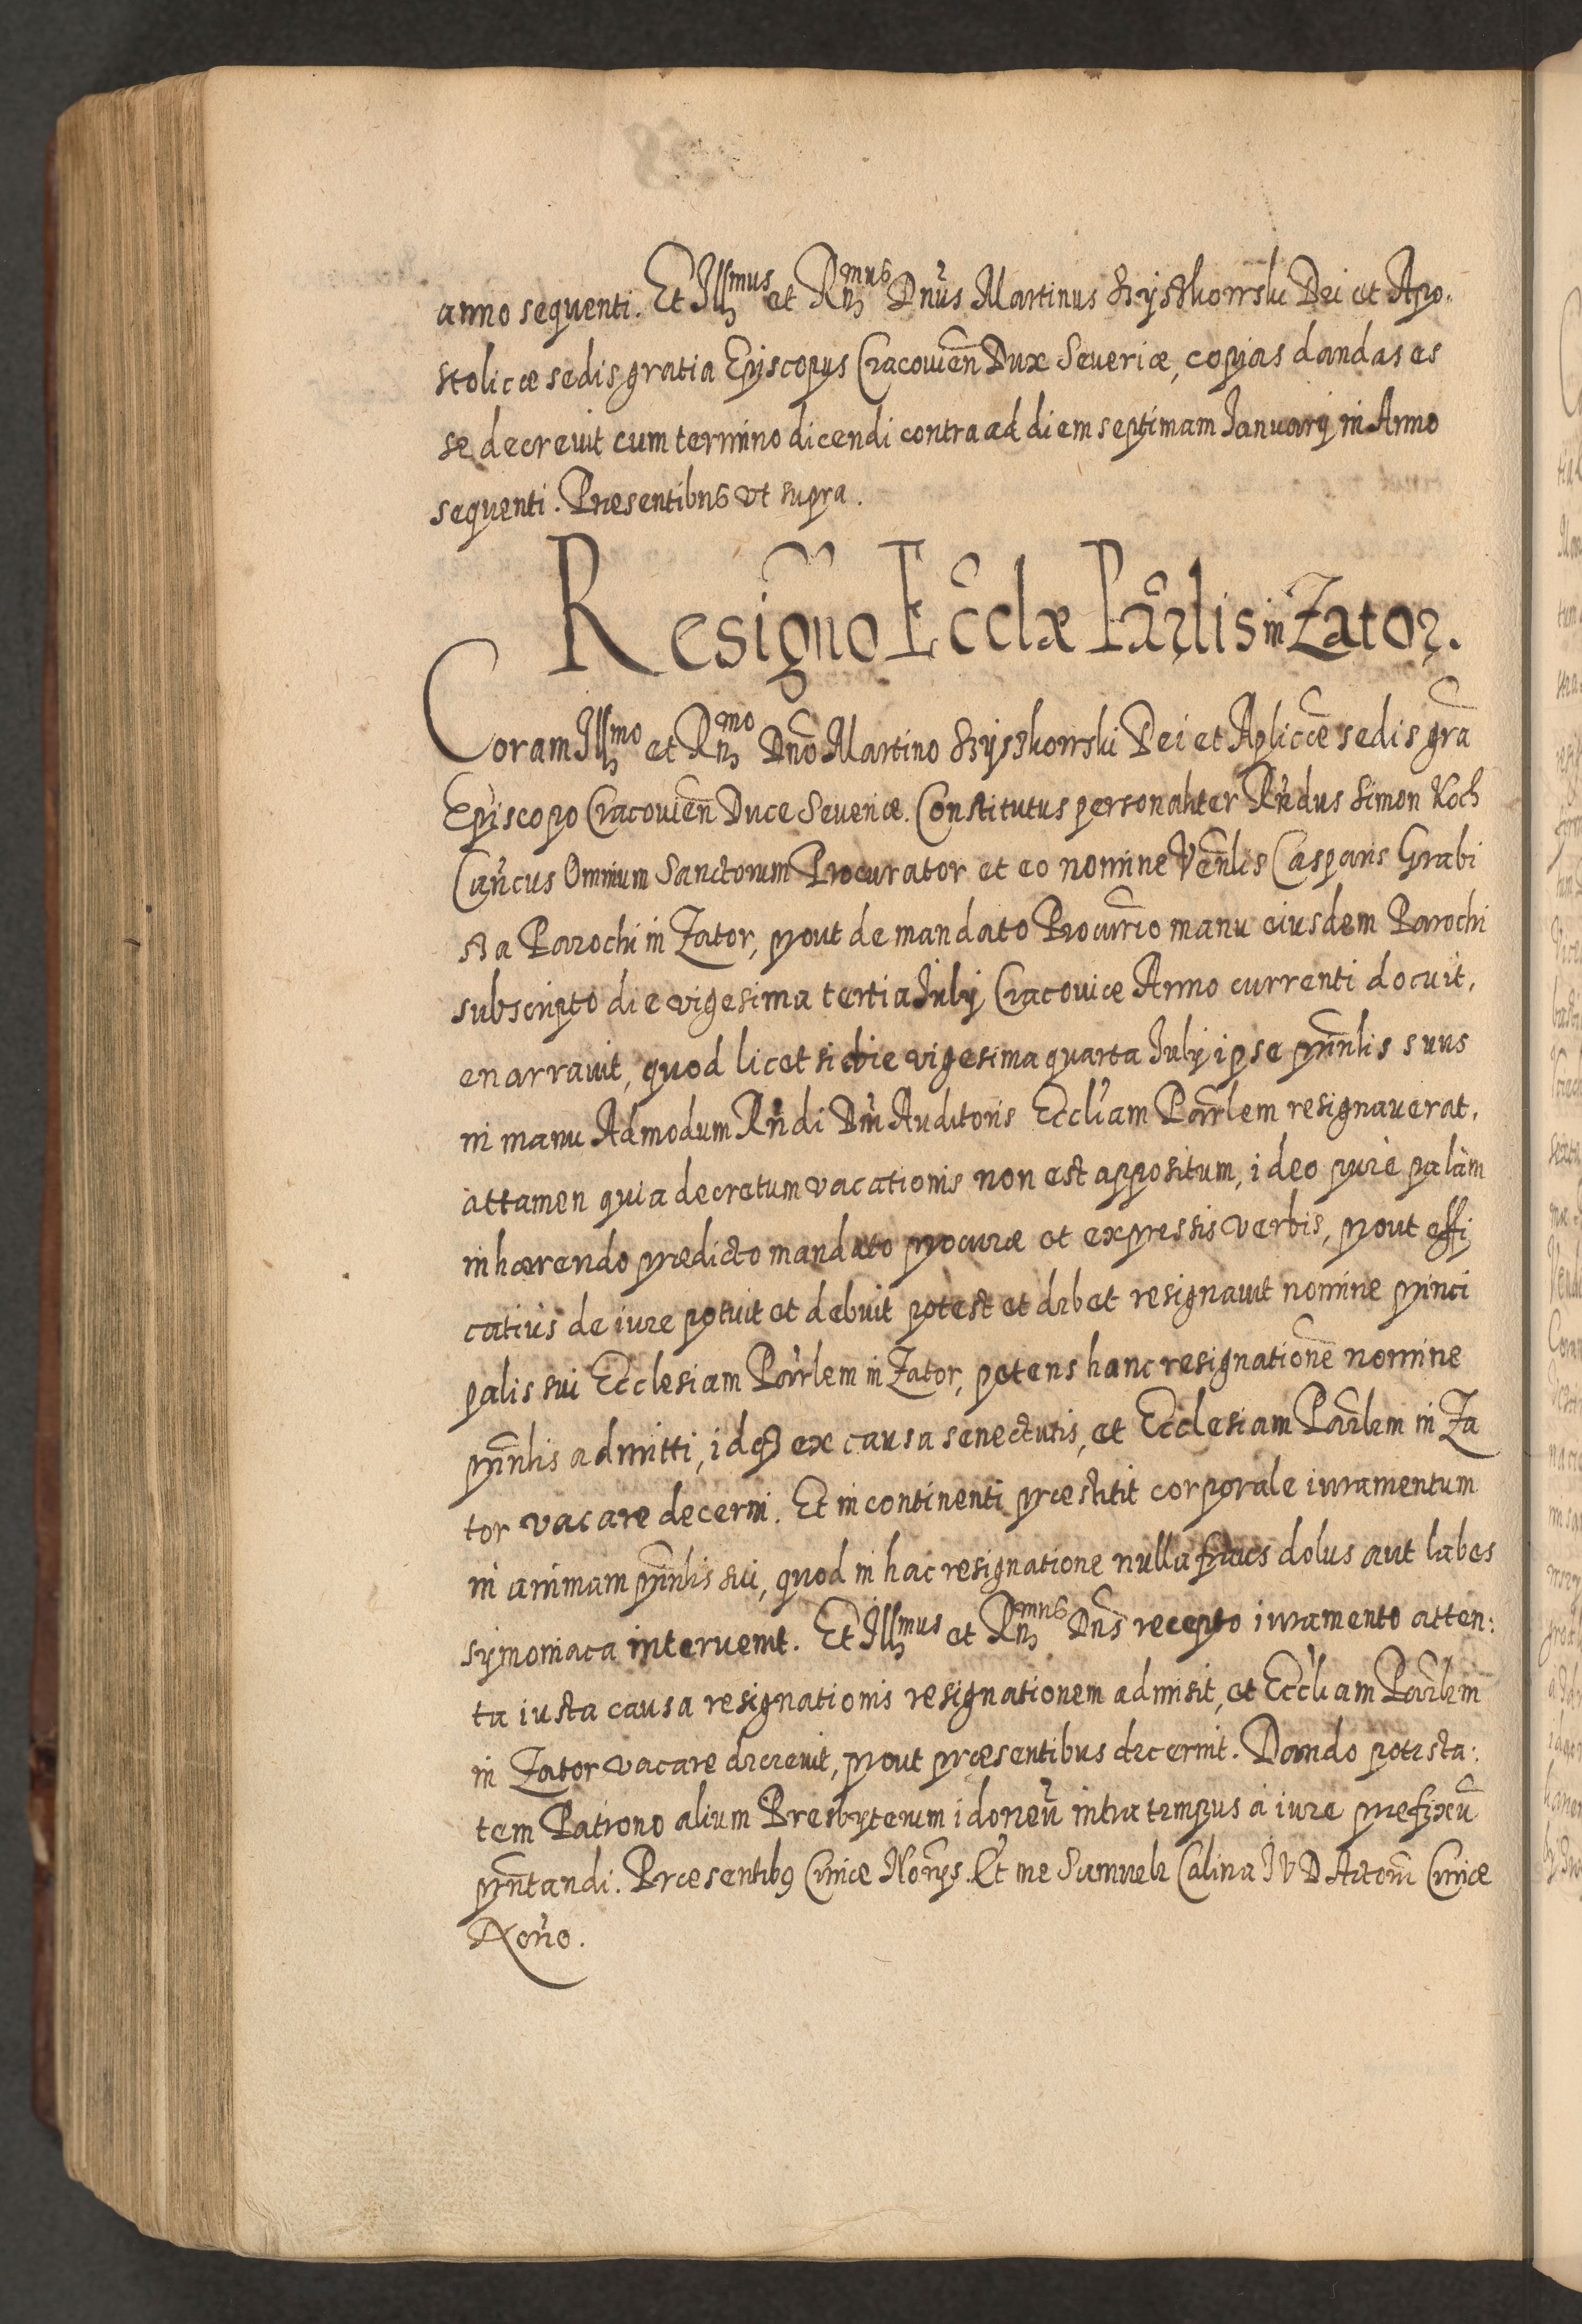 anno sequenti. Et Ill̃mus et Rñmus Dñus Martinus Szyszkowski Dei et Apo-
stolicæ sedis gratia Episcopus Cracovien̄ Dux Severiæ, copias dandas es
se decrevit cum termino dicendi contra ad diem septimam Januarij in Anno
sequenti. Præsentibus vt supra.
Resigñо Ecclæ Pārlis in Zator.
Coram Illmo et Rñmo Dnō Martino Szyszkowski Dei et Aplicæ sedis grā
Episcopo Cracovien̄ Duce Severiæ. Constitutus personaliter Rñdus Simon Koch
Cañcus Omnium Sanctorum Procurator et eo nomine Venlis Casparis Grabi
sta Parochi in Zator, prout de mandato Procurio manu eiusdem Parochi
subscripto die vigesima tertia July Cracoviæ Anno currenti docuit,
enarravit, quod licet si die vigesima quarta July ipse prīnlis suus
in manu Admodum Rñdi Dñi Auditoris Eccliam Pārlem resignaverat,
attamen quia decretum vacationis non est appositum, ideo purè palàm
inhærendo prædicto mandato procuræ et expressis verbis, prout effi
catius de iure potuit et debuit potest et debet resignavit nomine princi
palis sui Ecclesiam Pārlem in Zator, petens hanc resignationē nomine
prīnlis admitti, idq3 ex causa senectutis, et Ecclesiam Pārlem in Za
tor vacare decerni. Et in continenti præstitit corporale iuramentum
in animam prīnlis sui, quod in hac resignatione nulla fraus dolus aut labes
symoniaca intervenit. Et Illmus et Rñmus Dnṡ recepto iuramento atten:
ta iusta causa resignationis resignationem admisit, et Eccliam Pārlem
in Zator vacare decrevit, prout præsentibus decernit. Dando potesta:
tem Patrono alium Presbyterum idoneū intra tempus à iure præfixū
prñtandi. Præsentib9 Curiæ Norijs. Et me Samuele Calina J V D Actorū Curiæ
Noro̅.